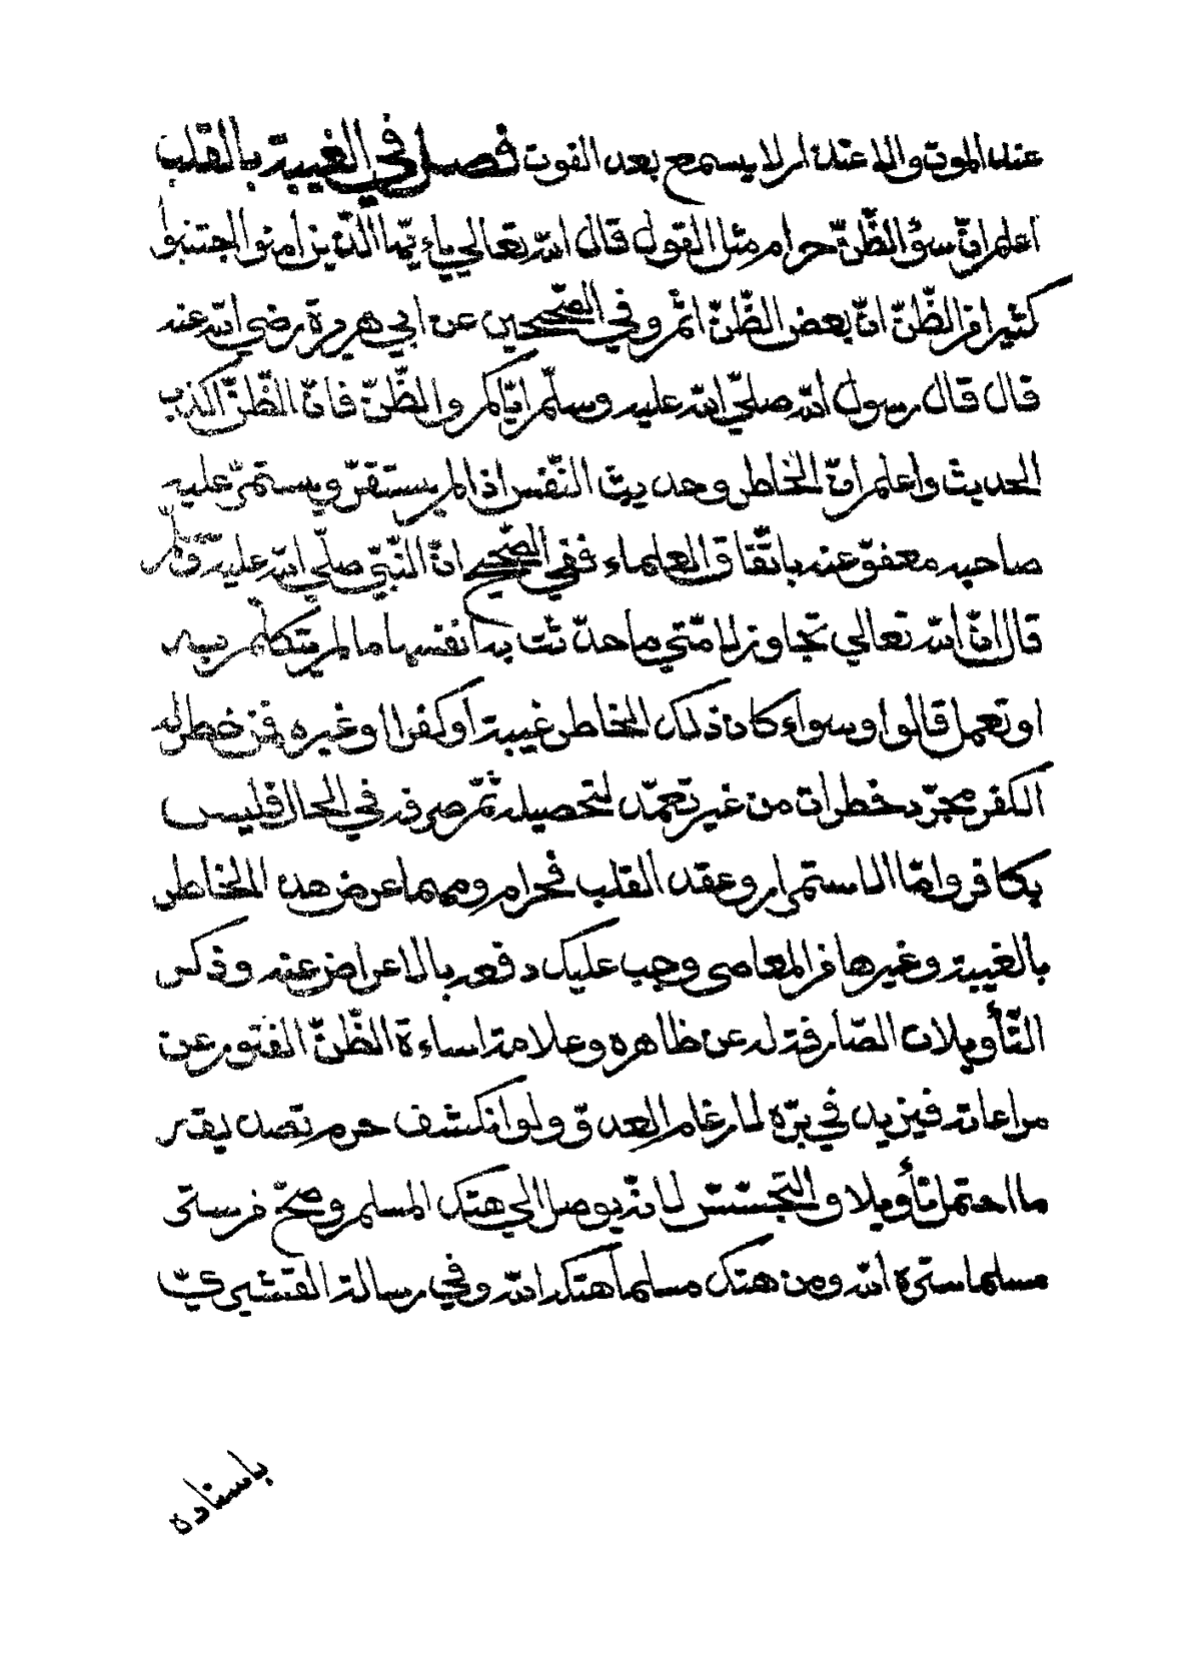 عند الموت والاعتذار لا يسمع بعد الفوت فصل في الغيبة بالقلب
اعلم انّ سوٴ الظّنّ حرام مثل القول قال الله تعالي ياءيّها الّذين امنوا اجتنبوا
كثيرا من الظّنّ انّ بعض الظّنّ اثم وفي الصّحيحين عن ابي هريرة رضي الله عنه
قال قال رسول الله صلّي الله عليه وسلّم ايّاكم والظّنّ فانّ الظّنّ اكذب
الحديث واعلم انّ الخاطر وحديث النّفس اذا لم يستقرّ ويستمرّ عليه
صاحبه معفوّ عنه باتّفاق العلماء ففي الصّحيح انّ النّبيّ صلّي الله عليه وسلّم
قال انّ الله تعالي تجاوز لامّتي ما حدّثت به انفسها ما لم يتكلّم به
او تعمل قالوا وسواء كان ذلك الخاطر غيبة او كفرا او غيره فمن خطر له
الكفر مجرّد خطرات من غير تعمّد لتحصيله ثمّ صرفه في الحال فليس
بكافر وامّا الاستمرار وعقد القلب فحرام ومهما عرض هذا الخاطر
بالغيبة وغيرها من المعاصي وجب عليك دفعه بالاعراض عنه وذكر
التّأويلات الصّارفة له عن ظاهره وعلامة اساءة الظّنّ الفتور عن
مراعاته فيزيد في برّه لارغام العدوّ ولو انكشف حرم تصديقه
ما احتمل تأويلا والتجسّس لانّه يوصل الي هتك المسلم وصحّ من ستر
مسلما ستره الله ومن هتك مسلما هتكه الله وفي رسالة القشيريّ
باسناده